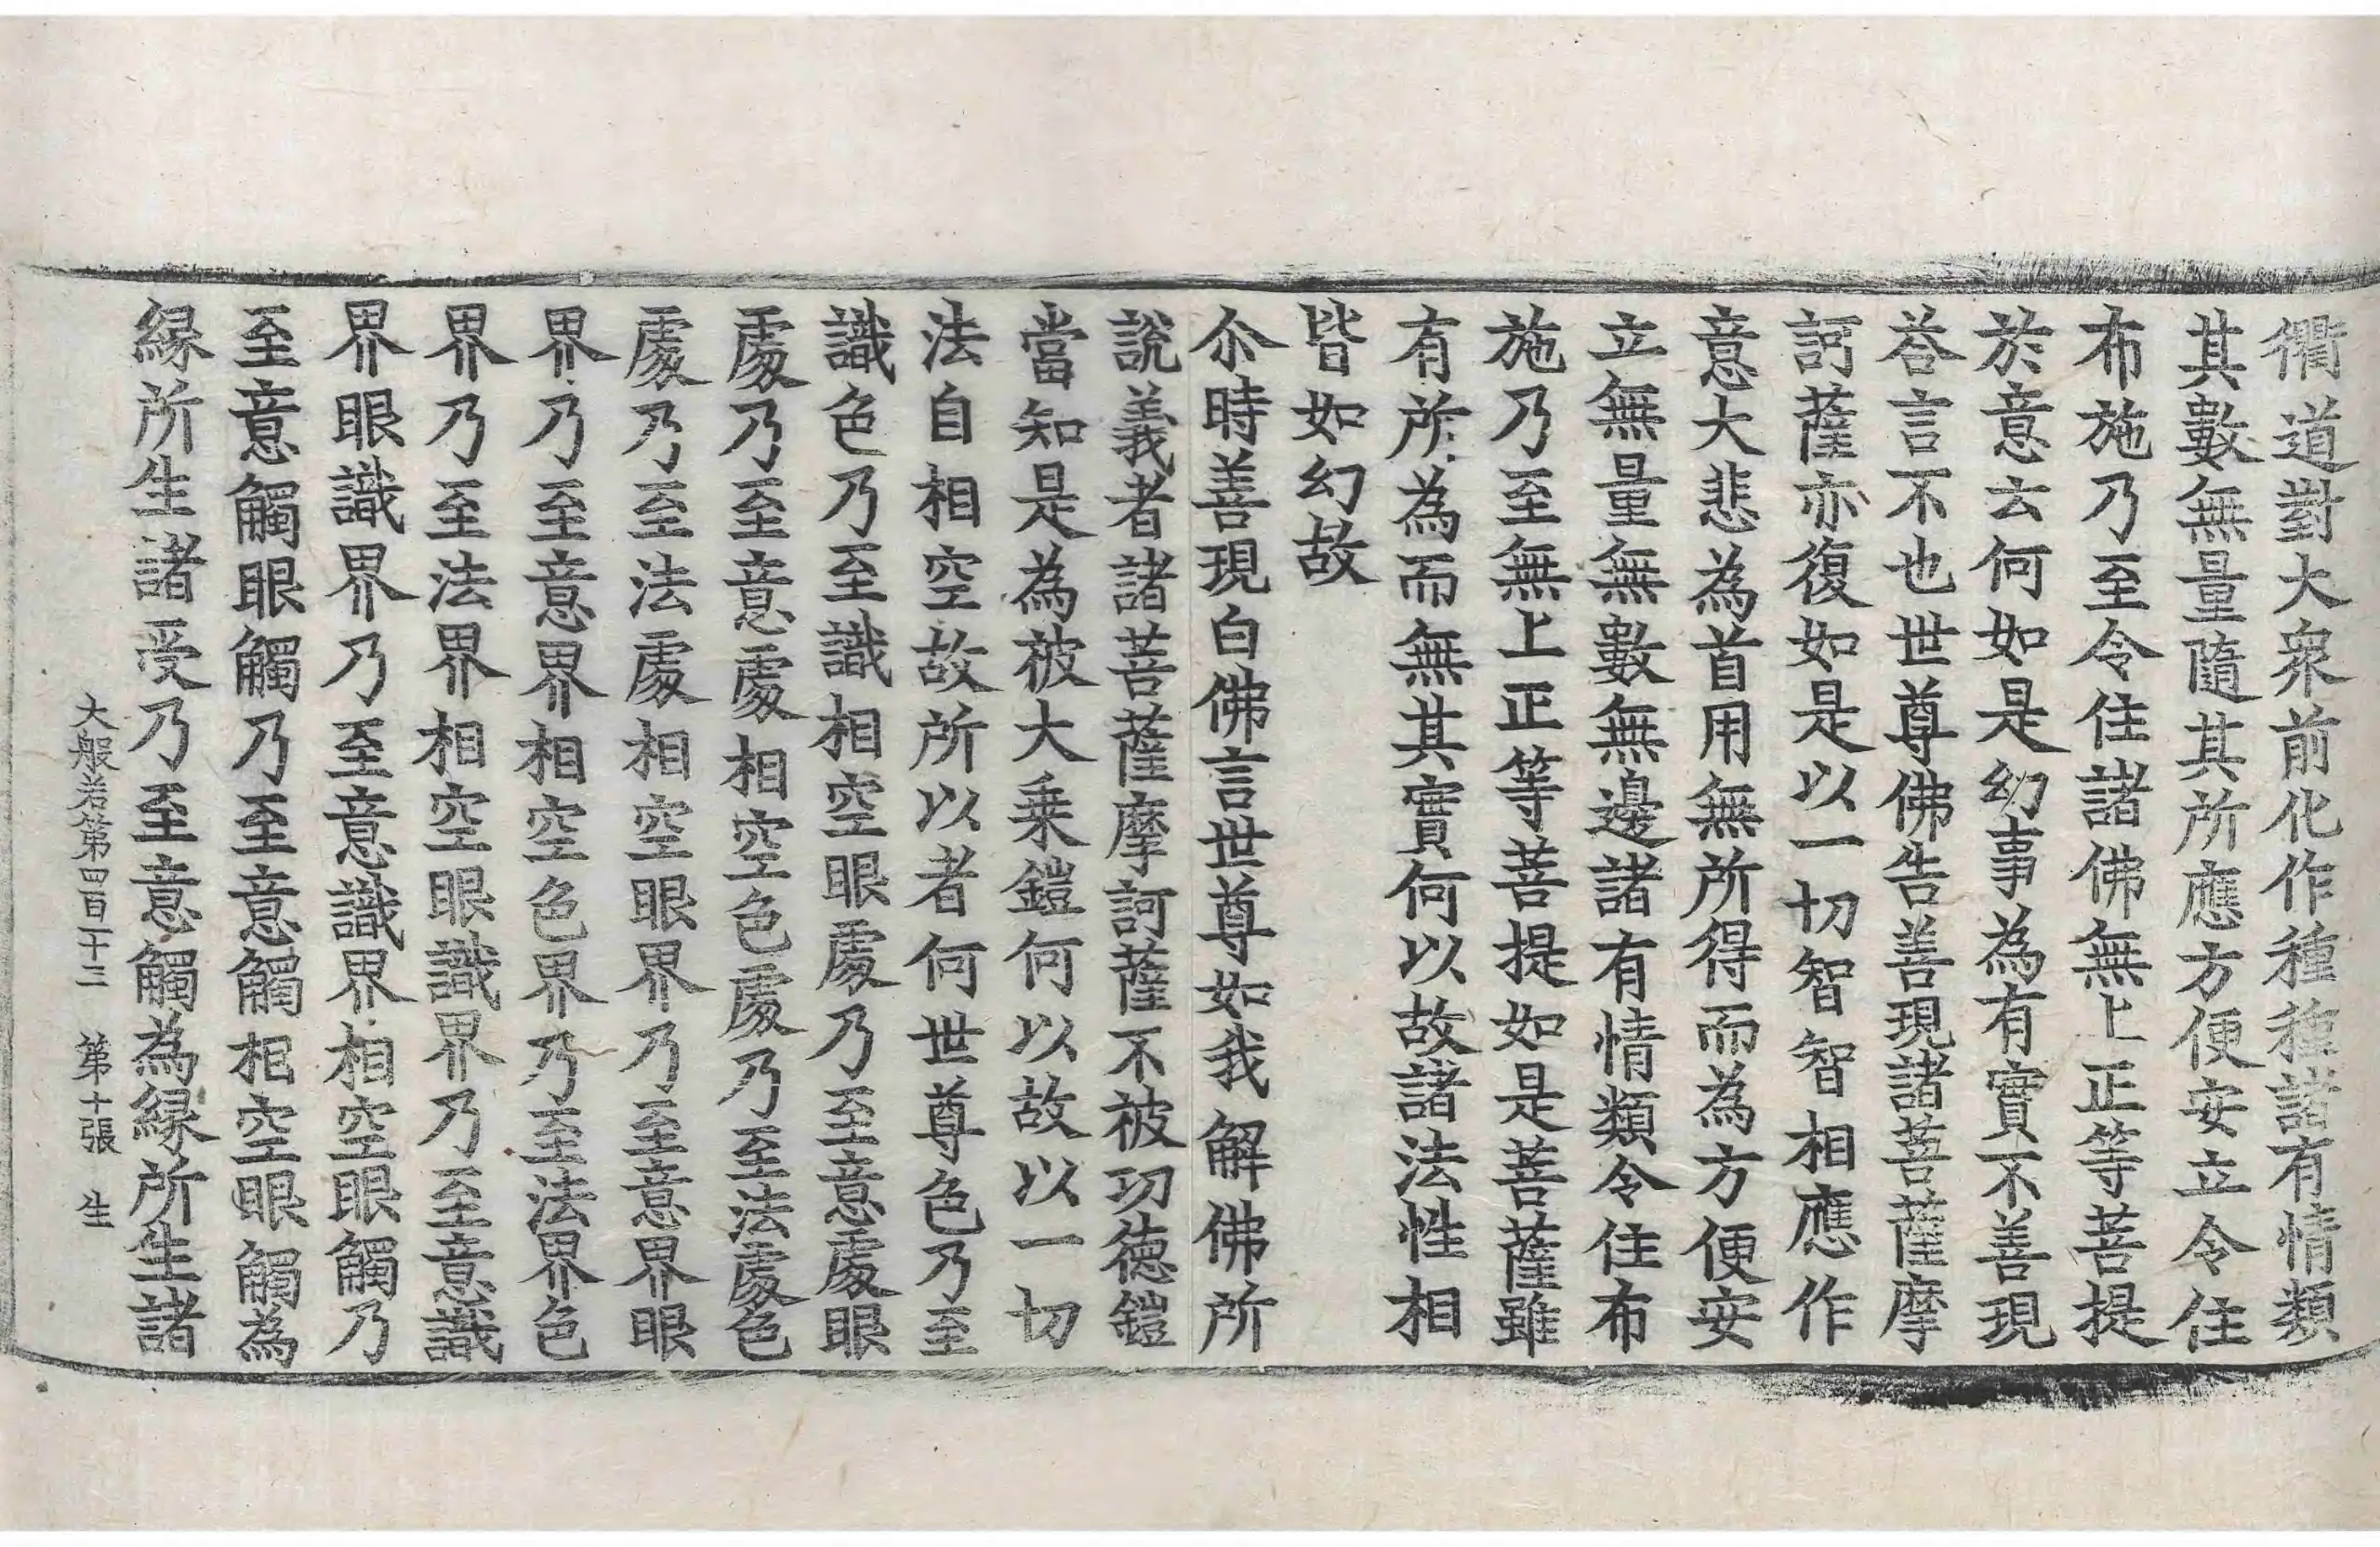 衢道對大衆前化作種種諸有情類
其數無量隨其所應方便安立令住
布施乃至令住諸佛無上正等菩提
於意云何如是幻事為有實不善現
荅言不也世尊佛告善現諸菩薩摩
訶薩亦復如是以一切智智相應作
意大悲為首用無所得而為方便安
立無量無數無邊諸有情類令住布
施乃至無上正等菩提如是菩薩雖
有所為而無其實何以故諸法性相
皆如幻故
尒時善現白佛言世尊如我解佛所
說義者諸菩薩摩訶薩不被功德鎧
當知是為被大乗鎧何以故以一切
法自相空故所以者何世尊色乃至
識色乃至識相空眼處乃至意處眼
處乃至意處相空色處乃至法處色
處乃至法處相空眼界乃至意界眼
界乃至意界相空色界乃至法界色
界乃至法界相空眼識界乃至意識
界眼識界乃至意識界相空眼觸乃
至意觸眼觸乃至意觸相空眼觸為
緣所生諸受乃至意觸為緣所生諸
大般若第四百一十三　第十張　生